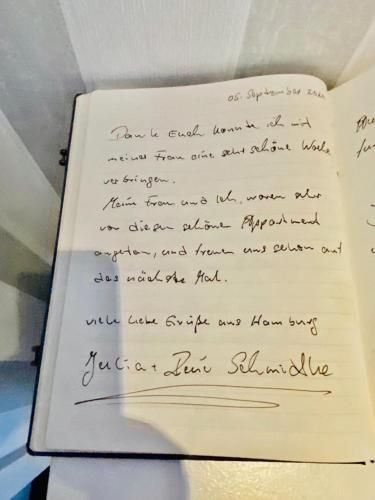 05. September
Dank Euch konnte ich mit
meiner Frau eine sehr schöne Woche
verbringen.
Meine Frau und ich, waren sehr
von diesem schönen Appartment
angetan, und freuen uns schon auf
das nächste Mal.
viele liebe Grüße aus Hamburg
Julia + Schmidtke